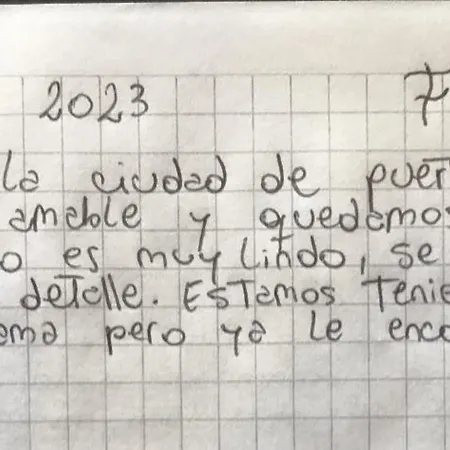 2023 7
la ciudad de puer
amable y quedamos
o es muy lindo, se
detalle. Estamos tenie
ema pero ya le enco